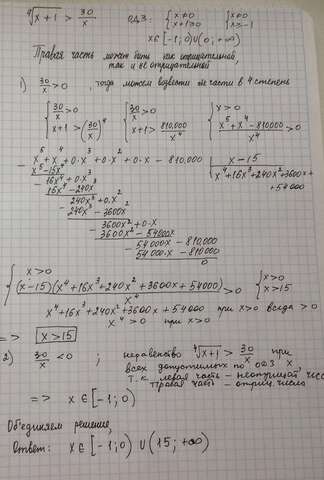 ⁴√(x+1) > 30/x    ОДЗ: { x≠0 x+1≥0 { x≠0 x≥-1
x∈[-1;0)∪(0;+∞)
Правая часть может быть как отрицательной,
так и не отрицательной,
1) 30/x > 0 , тогда можем возвести те части в 4 степень
{ 30/x > 0 x+1 > (30/x)⁴ { 30/x > 0 x+1 > 810,000/x⁴ { x > 0 (x⁵+x⁴-810000)/x⁴ > 0
x⁵+x⁴+0·x³+0·x²+0·x-810,000 | x-15
x⁵-15x⁴ x⁴+16x³+240x²+3600x+
16x⁴+0·x³ +54000
16x⁴-240x³
240x³+0·x²
240x³-3600x²
3600x²+0·x
3600x²-54000x
54000x-810,000
54000x-810,000
0
{ x>0 (x-15)(x⁴+16x³+240x²+3600x+54000)/x⁴ > 0 { x>0 x>15
x⁴+16x³+240x²+3600x+54000 при x>0 всегда >0
x⁴>0 при x>0
=> x>15
2) 30/x < 0 ; неравенство ⁴√(x+1) > 30/x при
всех допустимых по ОДЗ x,
т.к. левая часть - неотрицат. чис
Правая часть - отриц. число
=> x∈[-1;0)
Объединяем решения,
Ответ: x∈[-1;0)∪(15;+∞)